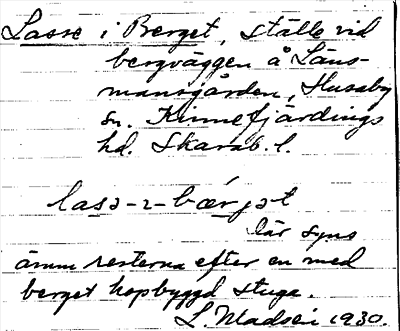 Lasse i Berget, ställe vid
bergväggen å Läns-
mansgården, Husaby
sn. Kinnefjärdings
hd. Skarab. l.
lasə-ɪ-bærjət
lär syns
ännu resterna efter en med
berget hopbyggd stuga.
L. Madsén 1930.